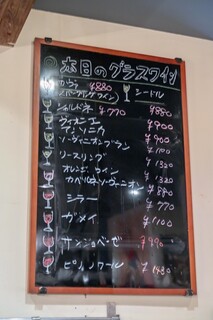 本日のグラスワイン
カヴァ ¥880
スパークリングワイン シードル
シャルドネ ¥770 ¥880
ヴィオニエ ¥900
アンソニカ ¥900
ソーヴィニオンブラン ¥1100
リースリング ¥1320
オレンジワイン ¥1320
カベルネソーヴィニオン ¥880
シラー ¥770
ガメイ ¥1100
サンジョベーゼ ¥990
ピノノワール ¥1430